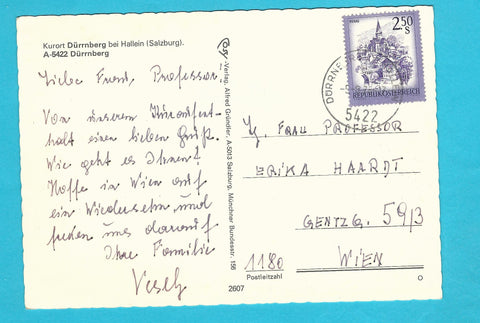 Kurort Dürrnberg bei Hallein (Salzburg).
A-5422 Dürrnberg
Liebe Frau Professor!
Von unserem Kuraufent-
halt einen lieben Gruß.
Wie geht es Ihnen?
Hoffe in Wien auf
ein Wiedersehn und
freuen uns darauf
Ihre Familie
Vesely
Verlag Alfred Gründler, A-5013 Salzburg, Münchner Bundesstr. 156
2,50
S
REPUBLIK ÖSTERREICH
DÜRRNB
5422
FRAU PROFESSOR
ERIKA HAARDT
GENTZG. 59/3
1180 WIEN
Postleitzahl
2607